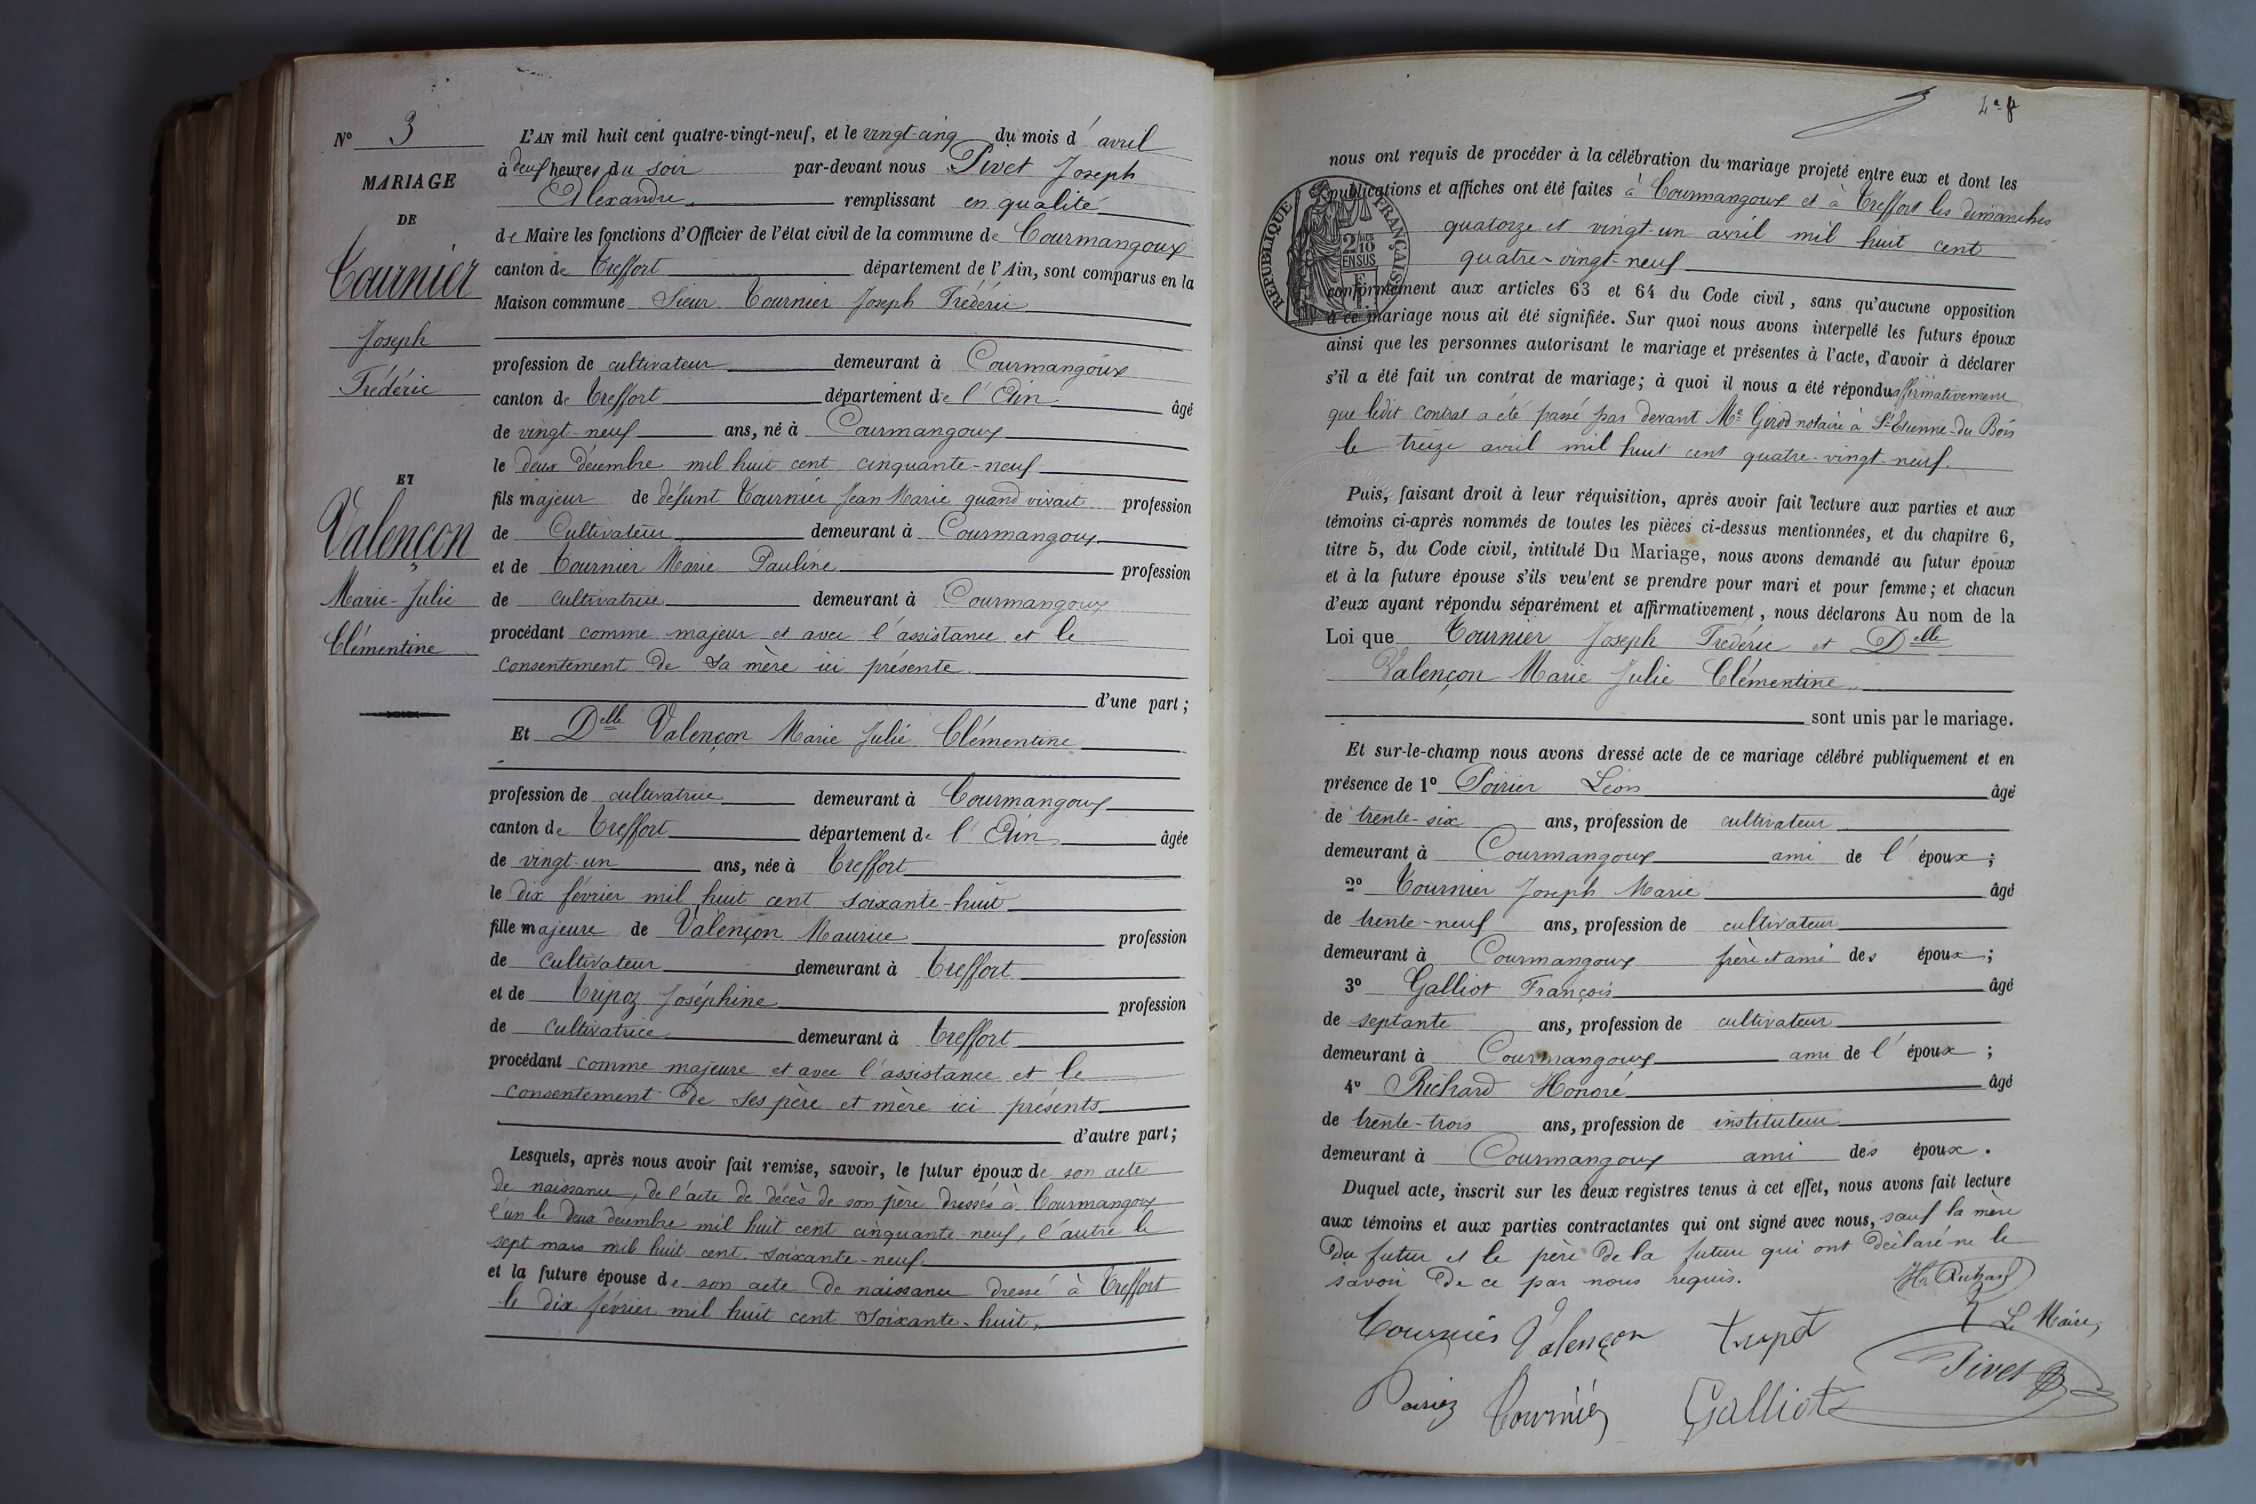 N° 3
MARIAGE
DE
Tournier
Joseph
Frédéric
ET
Valençon
Marie-Julie
Clémentine
L'AN mil huit cent quatre-vingt-neuf, et le vingt-cinq du mois d'avril
à neuf heures du soir par-devant nous Pivet Joseph
Alexandre remplissant en qualité
de Maire les fonctions d'Officier de l'état civil de la commune de Courmangoux
canton de Treffort département de l'Ain, sont comparus en la
Maison commune Sieur Tournier Joseph Frédéric
profession de cultivateur demeurant à Courmangoux
canton de Treffort département de l'Ain âgé
de vingt-neuf ans, né à Courmangoux
le deux décembre mil huit cent cinquante-neuf
fils majeur de défunt Tournier Jean Marie quand vivait profession
de Cultivateur demeurant à Courmangoux
et de Tournier Marie Pauline profession
de cultivatrice demeurant à Courmangoux
procédant comme majeur et avec l'assistance et le
consentement de sa mère ici présente
d'une part;
Et Delle Valençon Marie Julie Clémentine
profession de cultivatrice demeurant à Courmangoux
canton de Treffort département de l'Ain âgée
de vingt-un ans, née à Treffort
le dix février mil huit cent soixante-huit
fille majeure de Valençon Maurice profession
de cultivateur demeurant à Treffort
et de Tripoz Joséphine profession
de cultivatrice demeurant à Treffort
procédant comme majeure et avec l'assistance et le
consentement de ses père et mère ici présents
d'autre part;
Lesquels, après nous avoir fait remise, savoir, le futur époux de son acte
de naissance, de l'acte de décès de son père dressés à Courmangoux
l'un le deux décembre mil huit cent cinquante-neuf, l'autre le
sept mars mil huit cent soixante-neuf
et la future épouse de son acte de naissance dressé à Treffort
le dix février mil huit cent soixante-huit,
nous ont requis de procéder à la célébration du mariage projeté entre eux et dont les
publications et affiches ont été faites à Courmangoux et à Treffort les dimanches
quatorze et vingt-un avril mil huit cent
quatre-vingt-neuf
RÉPUBLIQUE FRANÇAISE
2/10
EN SUS
conformément aux articles 63 et 64 du Code civil, sans qu'aucune opposition
à ce mariage nous ait été signifiée. Sur quoi nous avons interpellé les futurs époux
ainsi que les personnes autorisant le mariage et présentes à l'acte, d'avoir à déclarer
s'il a été fait un contrat de mariage; à quoi il nous a été répondu affirmativement
que ledit contrat a été passé par devant Me Girod notaire à St Etienne-du Bois
le treize avril mil huit cent quatre-vingt-neuf.
Puis, faisant droit à leur réquisition, après avoir fait lecture aux parties et aux
témoins ci-après nommés de toutes les pièces ci-dessus mentionnées, et du chapitre 6,
titre 5, du Code civil, intitulé Du Mariage, nous avons demandé au futur époux
et à la future épouse s'ils veulent se prendre pour mari et pour femme; et chacun
d'eux ayant répondu séparément et affirmativement, nous déclarons Au nom de la
Loi que Tournier Joseph Frédéric et Delle
Valençon Marie Julie Clémentine
sont unis par le mariage.
Et sur-le-champ nous avons dressé acte de ce mariage célébré publiquement et en
présence de 1° Poirier Léon âgé
de trente-six ans, profession de cultivateur
demeurant à Courmangoux ami de l'époux;
2° Tournier Joseph Marie âgé
de trente-neuf ans, profession de cultivateur
demeurant à Courmangoux frère et ami des époux;
3° Galliot François âgé
de septante ans, profession de cultivateur
demeurant à Courmangoux ami de l'époux;
4° Richard Honoré âgé
de trente-trois ans, profession de instituteur
demeurant à Courmangoux ami des époux.
Duquel acte, inscrit sur les deux registres tenus à cet effet, nous avons fait lecture
aux témoins et aux parties contractantes qui ont signé avec nous, sauf la mère
du futur et le père de la future qui ont déclaré ne le
savoir de ce par nous requis.
Tournier Valençon
Le Maire,
Pivet
Tournier Galliot